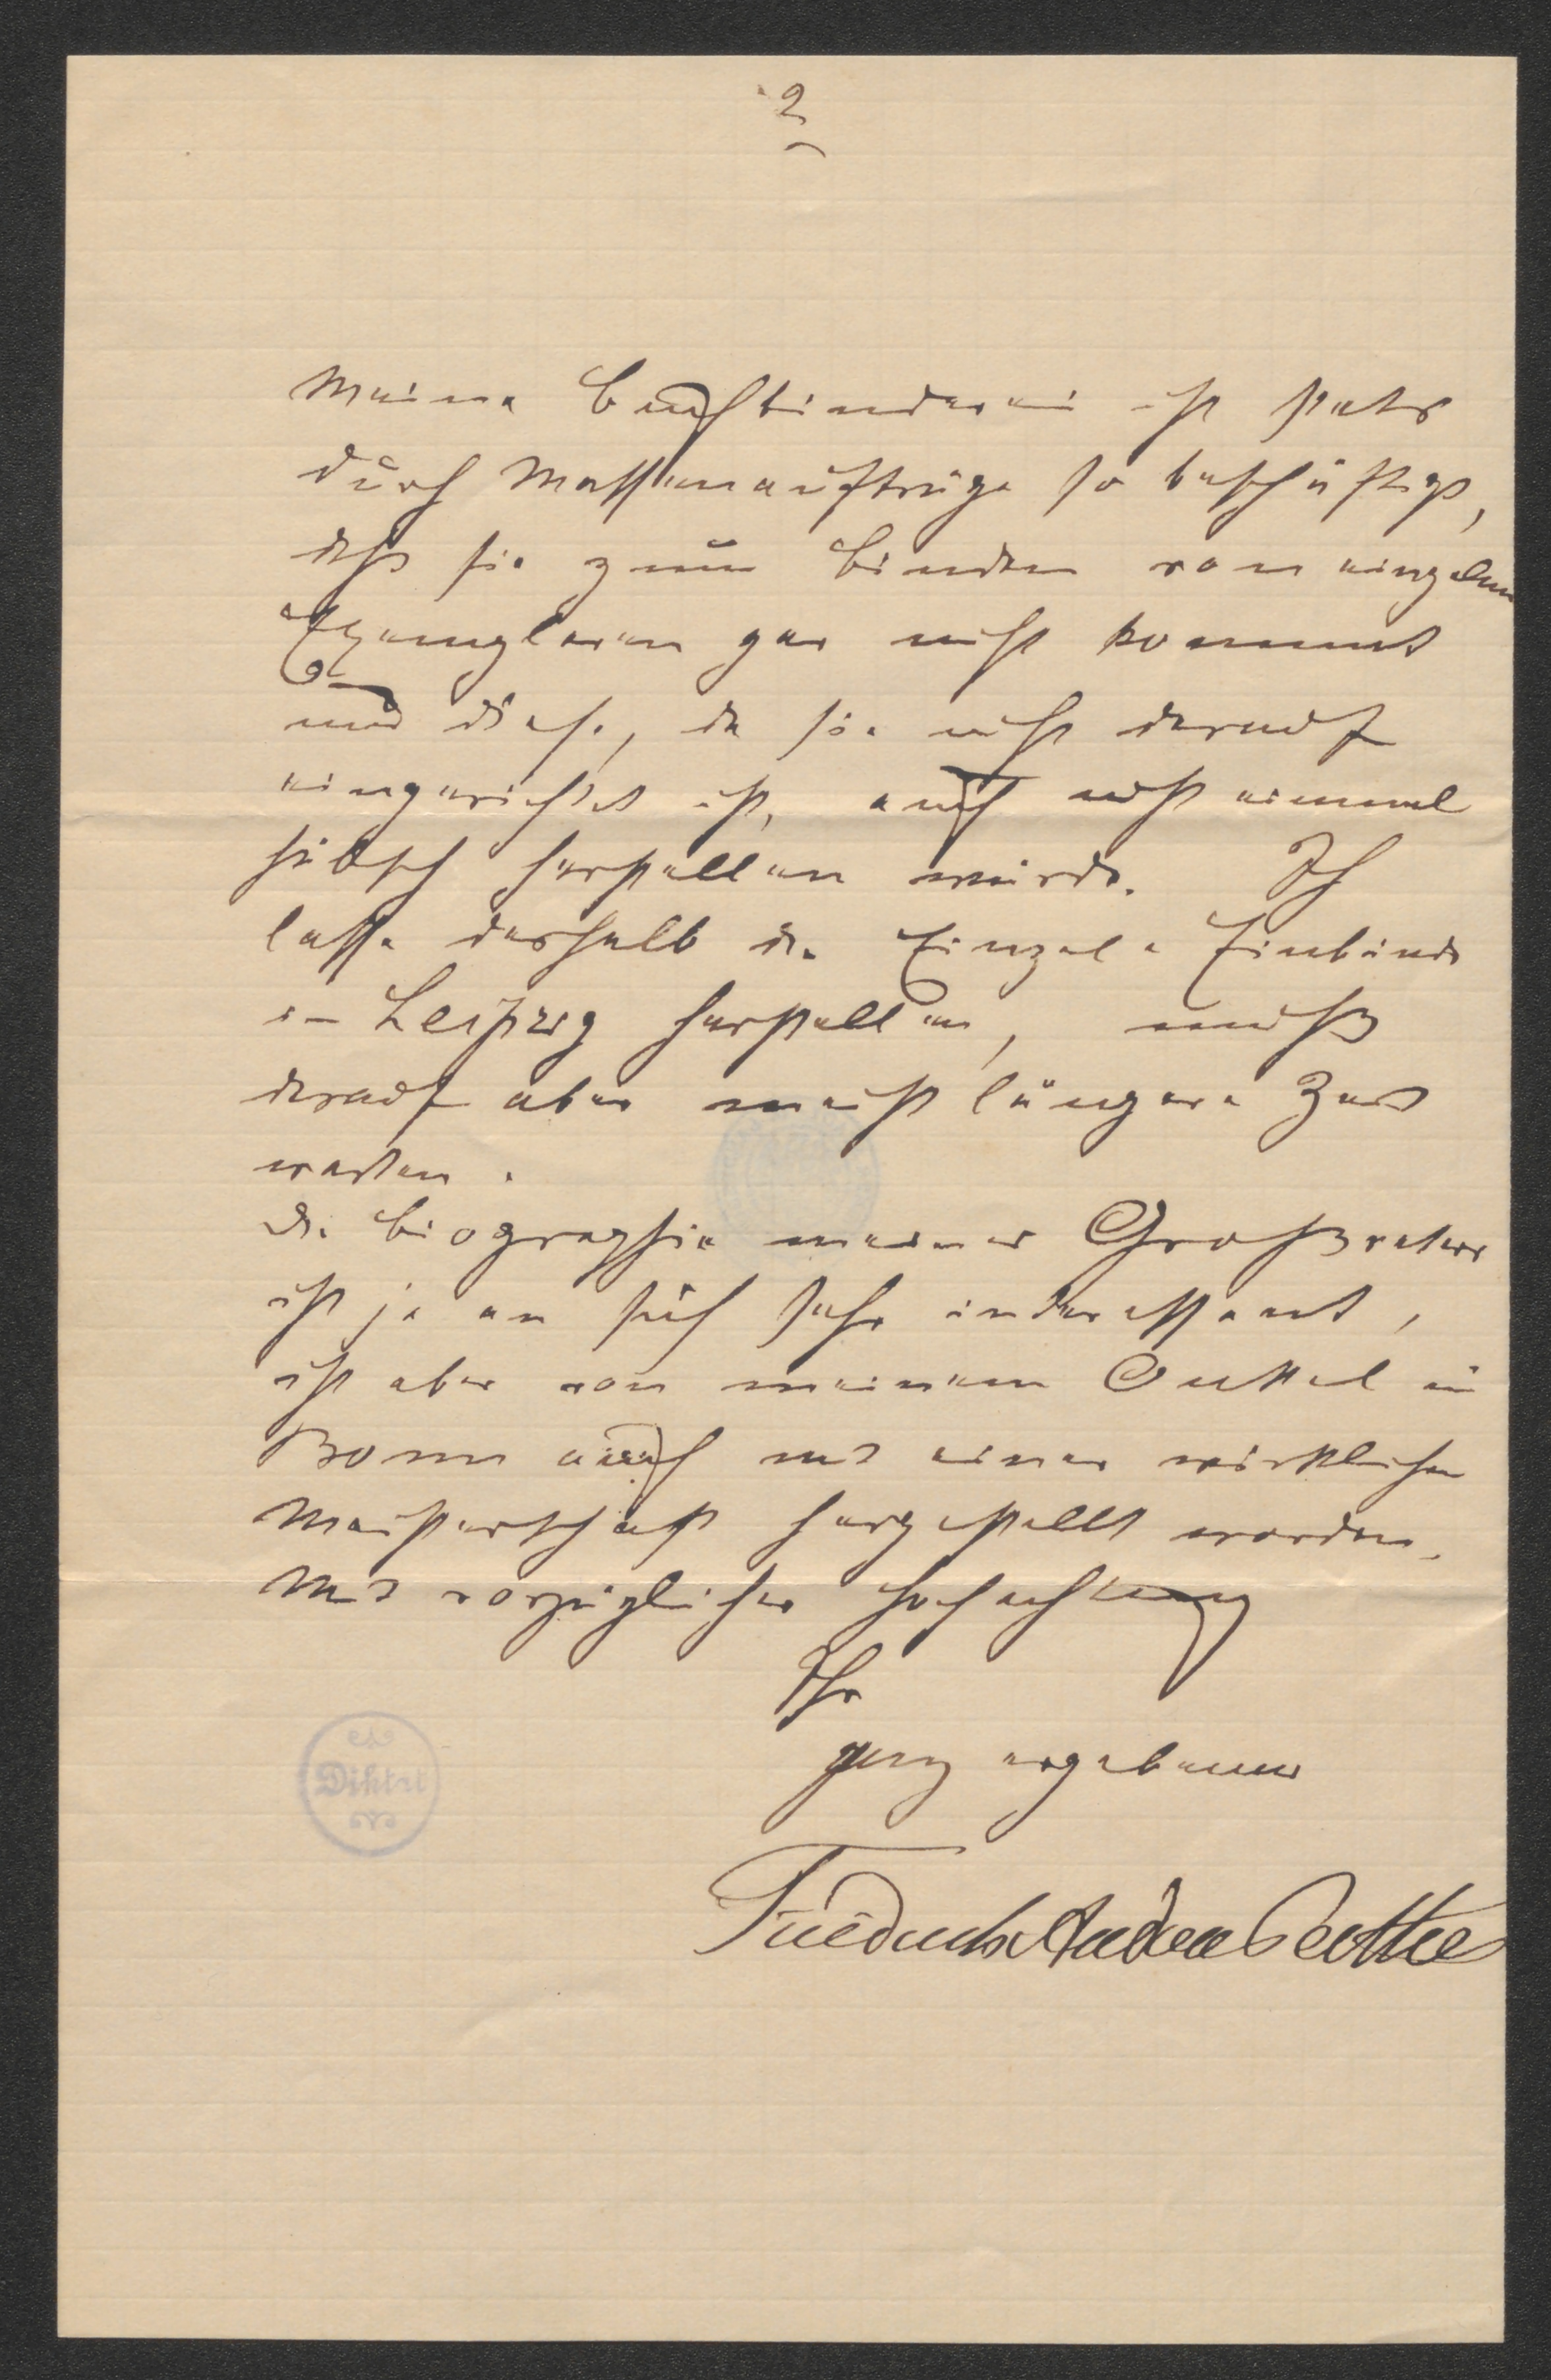 2
Meine Buchbinderei ist stets
durch Massenaufträge so beschäftigt,
daß sie zum Binden von einzelnen
Exemplaren gar nicht kommt
und diese, da sie nicht darauf
eingerichtet ist, auch nicht einmal
hübsch herstellen würde. Ich
lasse deshalb die Einzel-Einbände
in Leipzig herstellen, muß
darauf aber meist längere Zeit
warten.
Die Biographie meines Großvaters
ist ja an sich sehr interessant,
ist aber von meinem Onkel in
Bonn auch mit einer wirklichen
Meisterschaft hergestellt worden.
Mit vorzüglicher Hochachtung
Ihr
ganz ergebener
Friedrich Andreas Perthes
Diktat